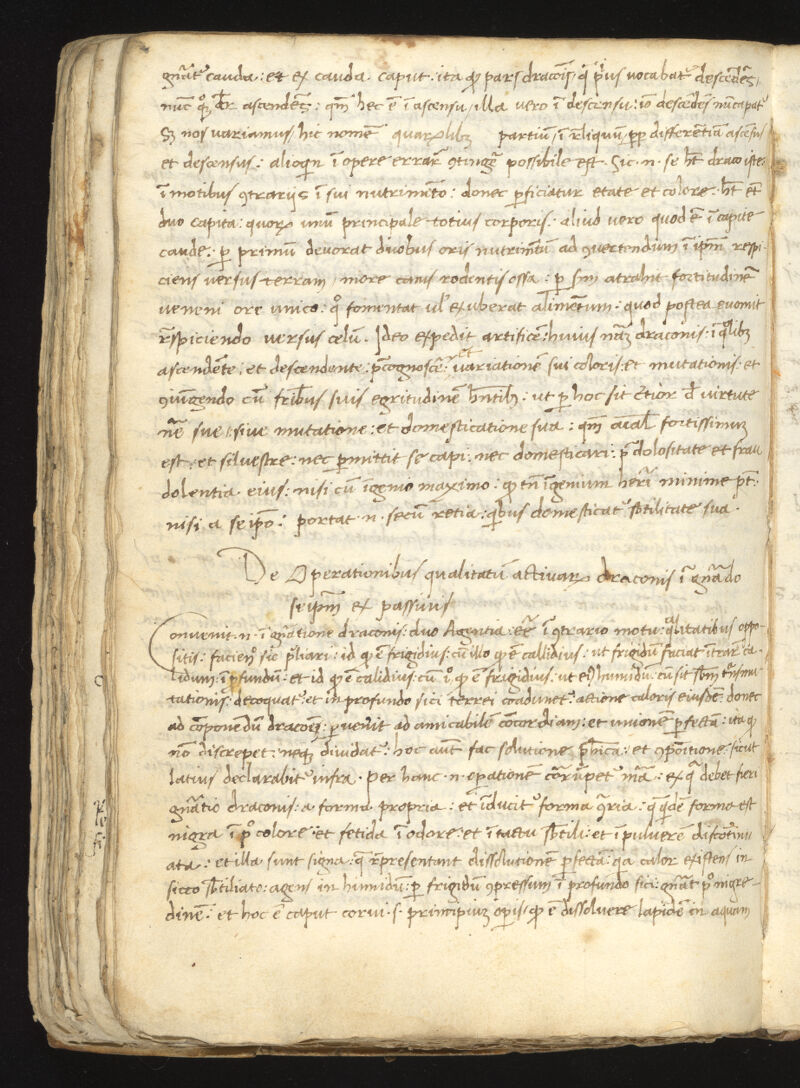 gñat᷑ cauda : et ex cauda caput : ita qᷓ pars dracoīs / q̄ pͥus uocabat᷑ descēdēs,
nūc qꝫ dr̄ ascendēs : qm̄ hec ē ī ascensu / illa uero ī descensu : iō descēdēs nūcupat᷑
Sꝫ nos uariamus / hic nomē quarūlibꝫ partiū / ī r̄liquūm / ꝓp differentiā ascēsus
et descensus : alioqn̄ ī opere errar̄ ꝯtinḡr possibile est . Sic . n . se ht̄ draco iste :
ī motibus ꝯtrarijs ī sui nutrimēto : donec ꝑficiatur etate et colore . ht̄ et̄
duo capita : quoꝝ unū principale totius corporis . aliud uero quod ē ī capite
caude : ꝑ primū deuorat duobus oris nutrimētū ad ꝯuertendum ī ip̄m respi-
ciens uersus terram / more canis rodentis ossa : ꝑ sm̄ atrahit fortitudinē
ueneni ore unico : qͦ fomentat ul̄ exuberat alimētum : quod postea euomit
r̄spiciendo uersus celū . Ideo expedit artificē : huius nāꝫ draconis : ī qᷓlibꝫ
ascendēte : et descendente : p̄cognoscē : uariationē sui coloris : et mutationis : et
ꝯiūgendo cū fr̄ibus suis egritudinē hn̄tibꝫ : ut ꝑ hoc sit c̄tior d̄ uirtute
nr̄e sue / siue mutatione : et domesticatione sua : qm̄ aīal fortissimuꝫ
est : et siluestre : nec ꝑmittit se capi : nec domesticari : p̄ dolositate et frau
dolentia eius : nisi cū igenio maximo : qᷓ tn̄ īgenium her̄i minime pt̄ :
nisi a seip̄o : portat . n . secū retia : qͥbus domesticat᷑ sb̄tilitate sua .
De Operationibus qualitatū actiuaꝝ draconis ī gñādo
seip̄m ex passiuis
Conuenit . n . ī gn̄atione draconis : duo Agentia : ēē ī ꝯtrario motu : qᷓlitatibus oppo-
sitis : facien̄ sic p̄liari : id qᷓ ē frigidius : cū illo qᷓ ē callidius : ut frigidū faciat ītrar̄ ca-
lidum : ī ꝓfundū : et id qᷓ ē calidius : cū iͦ . qᷓ ē frigidius : ut eiꝰ humidū : cū sit sb̄m trāsmu-
tationis : decoquat᷑ : et in profundo sici terrei coadunet᷑ : actione caloris eiusdē : donec
ad cōponendū dracoēꝫ : ꝑuenit ad amicabilē cōcordiam : et unione ꝑfectā : ita qᷓ
nō discrepet : neqꝫ diuidat᷑ : hoc aūt fac solutione ph̄ica : et ꝯpōitione : sicut
latius declarabit᷑ infra . Per hanc . n . oꝑationē corrūpet᷑ mā : ex qᷓ debet fieri
gn̄atio draconis : a forma propria : et īducit᷑ forma ꝯria : q̄ quidē forma est
nigra ī pͦ colore : et fetida ī odore : et ī tactu sb̄tili : et ī puluerē discōtinu
ata : et illa sunt signa : q̄ r̄presentant dissolutionē ꝑfectā : qa calor existens in
sicco sb̄tiliato : agens in humidū : ꝑ frigidū ꝯpressum ī profundo sici : gn̄at pͦ nigre-
dinē : et hoc ē caput corui . s . principiuꝫ oꝑis / qᷓ ē dissoluere lapidē in aquam